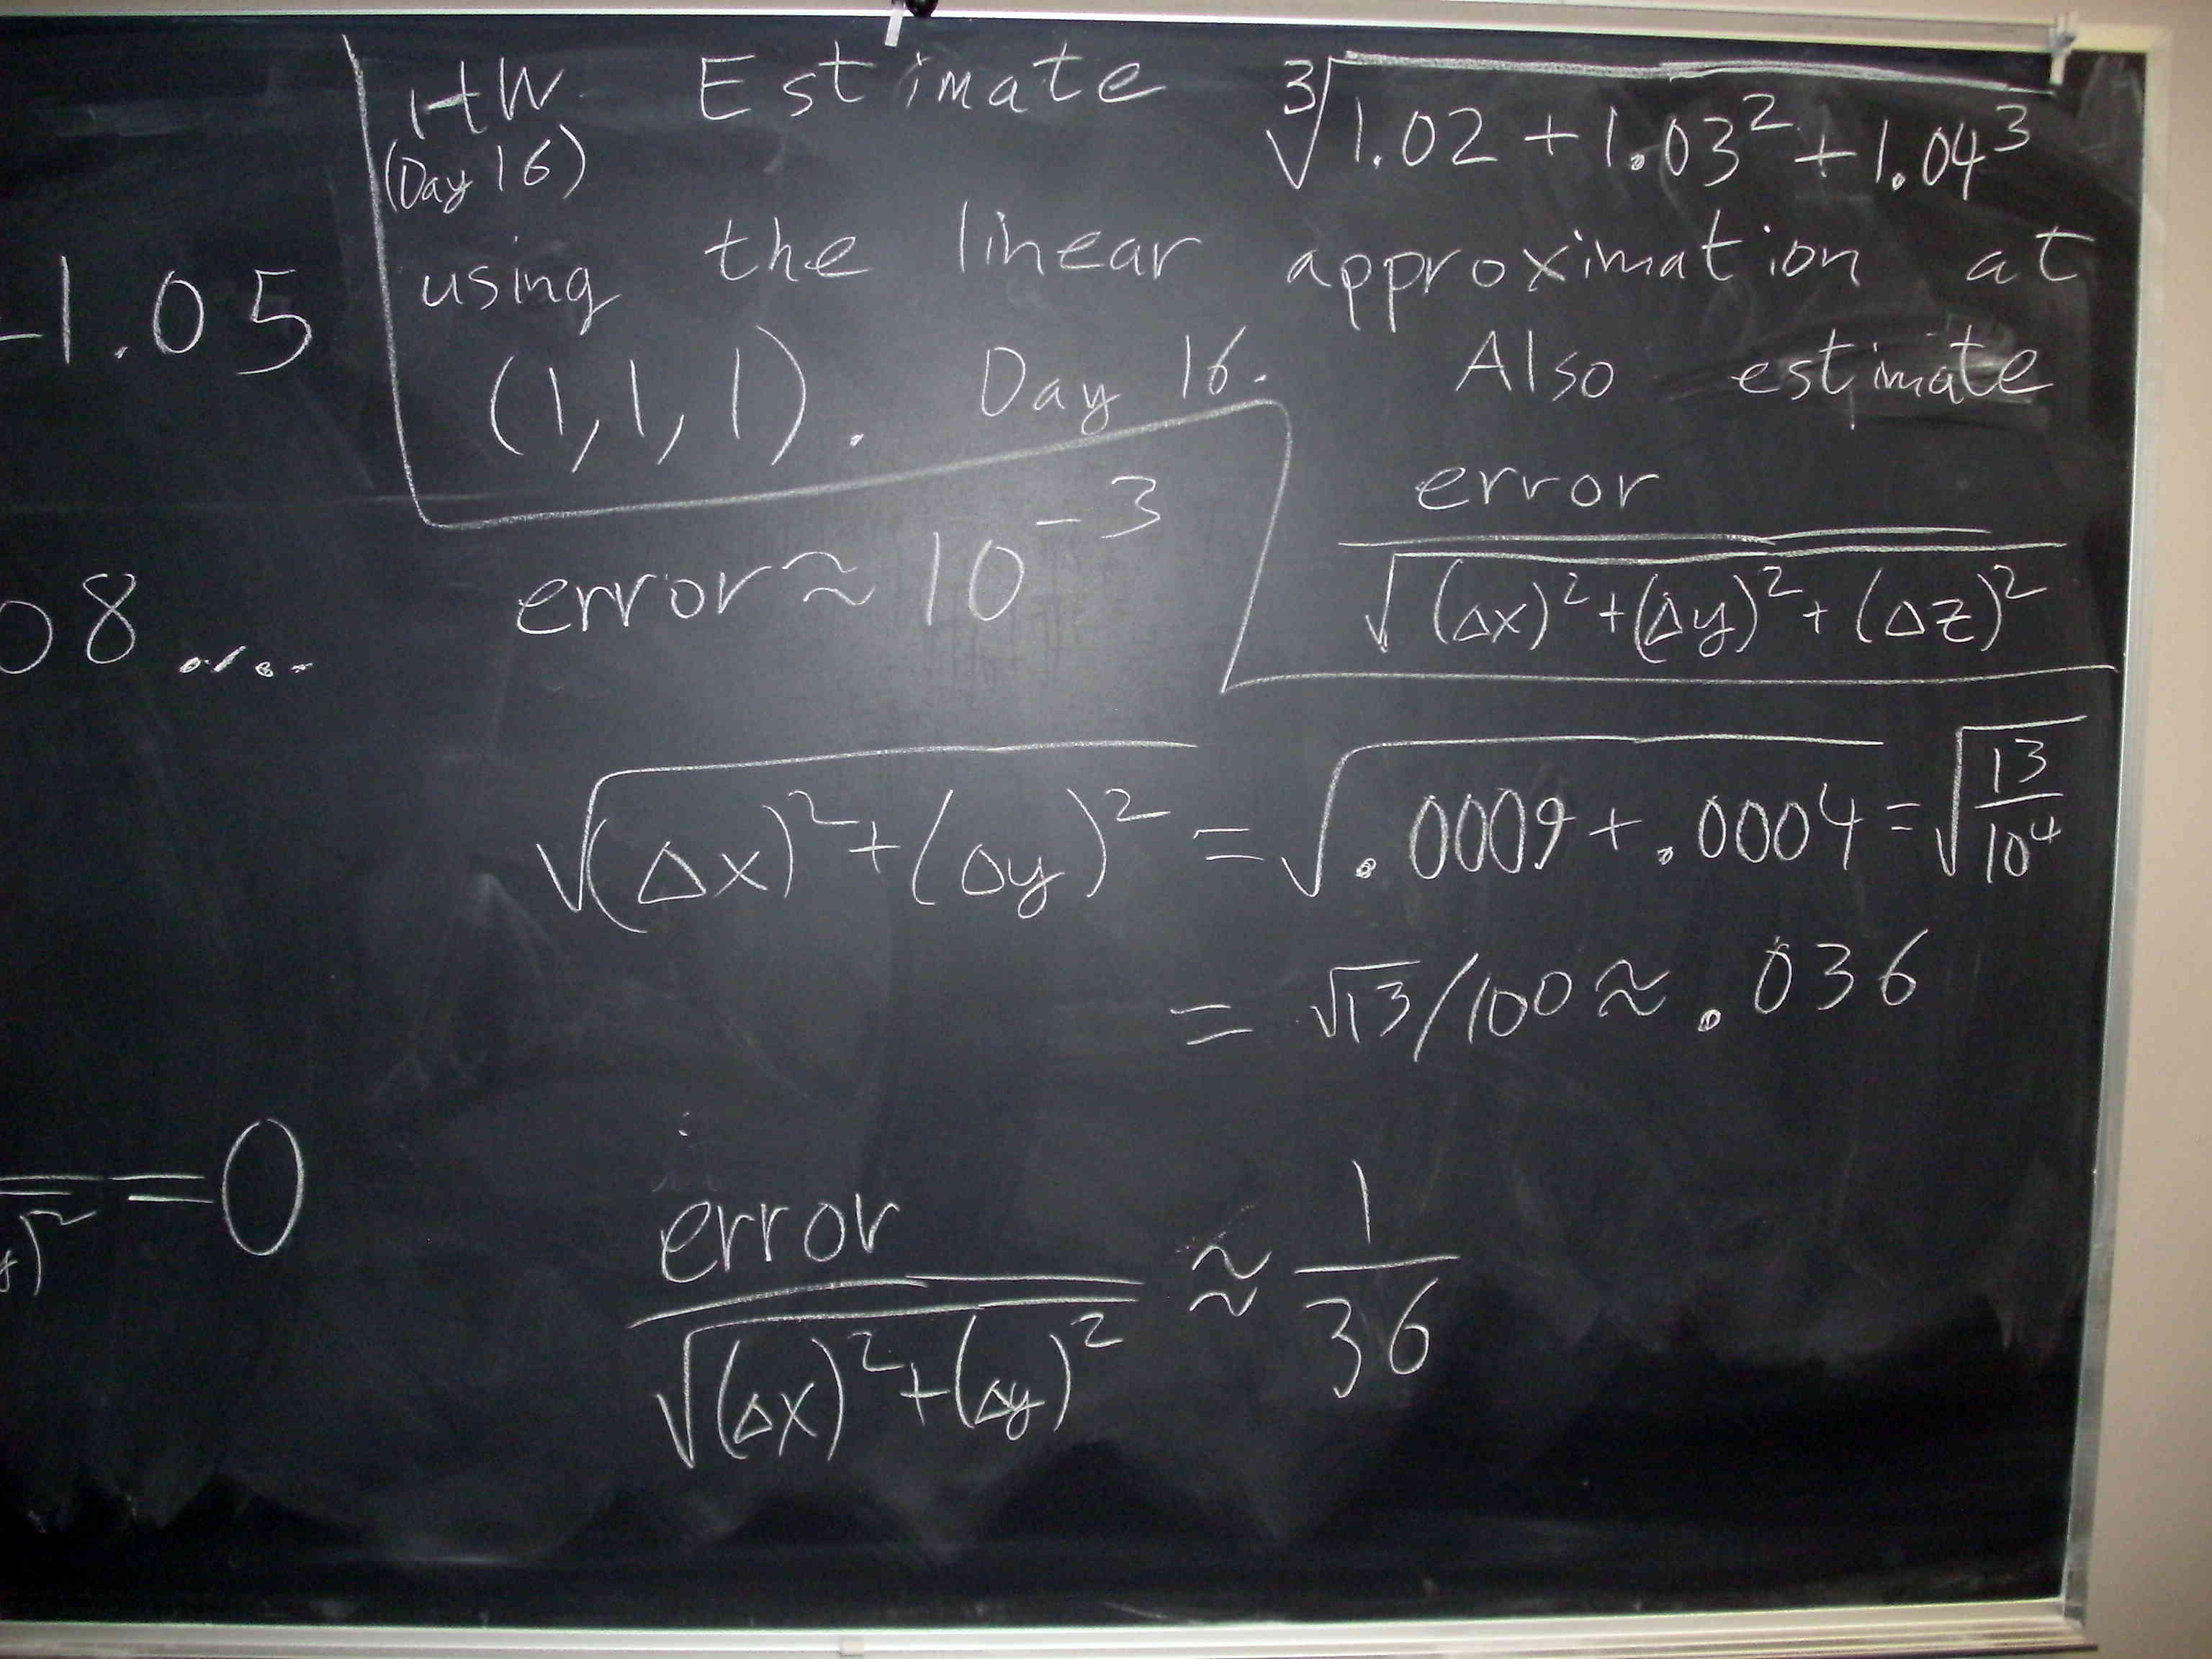 -1.05
08....
=0
HW Estimate ∛(1.02 + 1.03² + 1.04³)
(Day 16)
using the linear approximation at
(1,1,1). Day 16. Also estimate
error / √((Δx)²+(Δy)²+(Δz)²)
error ≈ 10⁻³
√((Δx)²+(Δy)²) = √(.0009+.0004) = √(13/10⁴)
= √13/100 ≈ .036
error / √((Δx)²+(Δy)²) ≈ 1/36